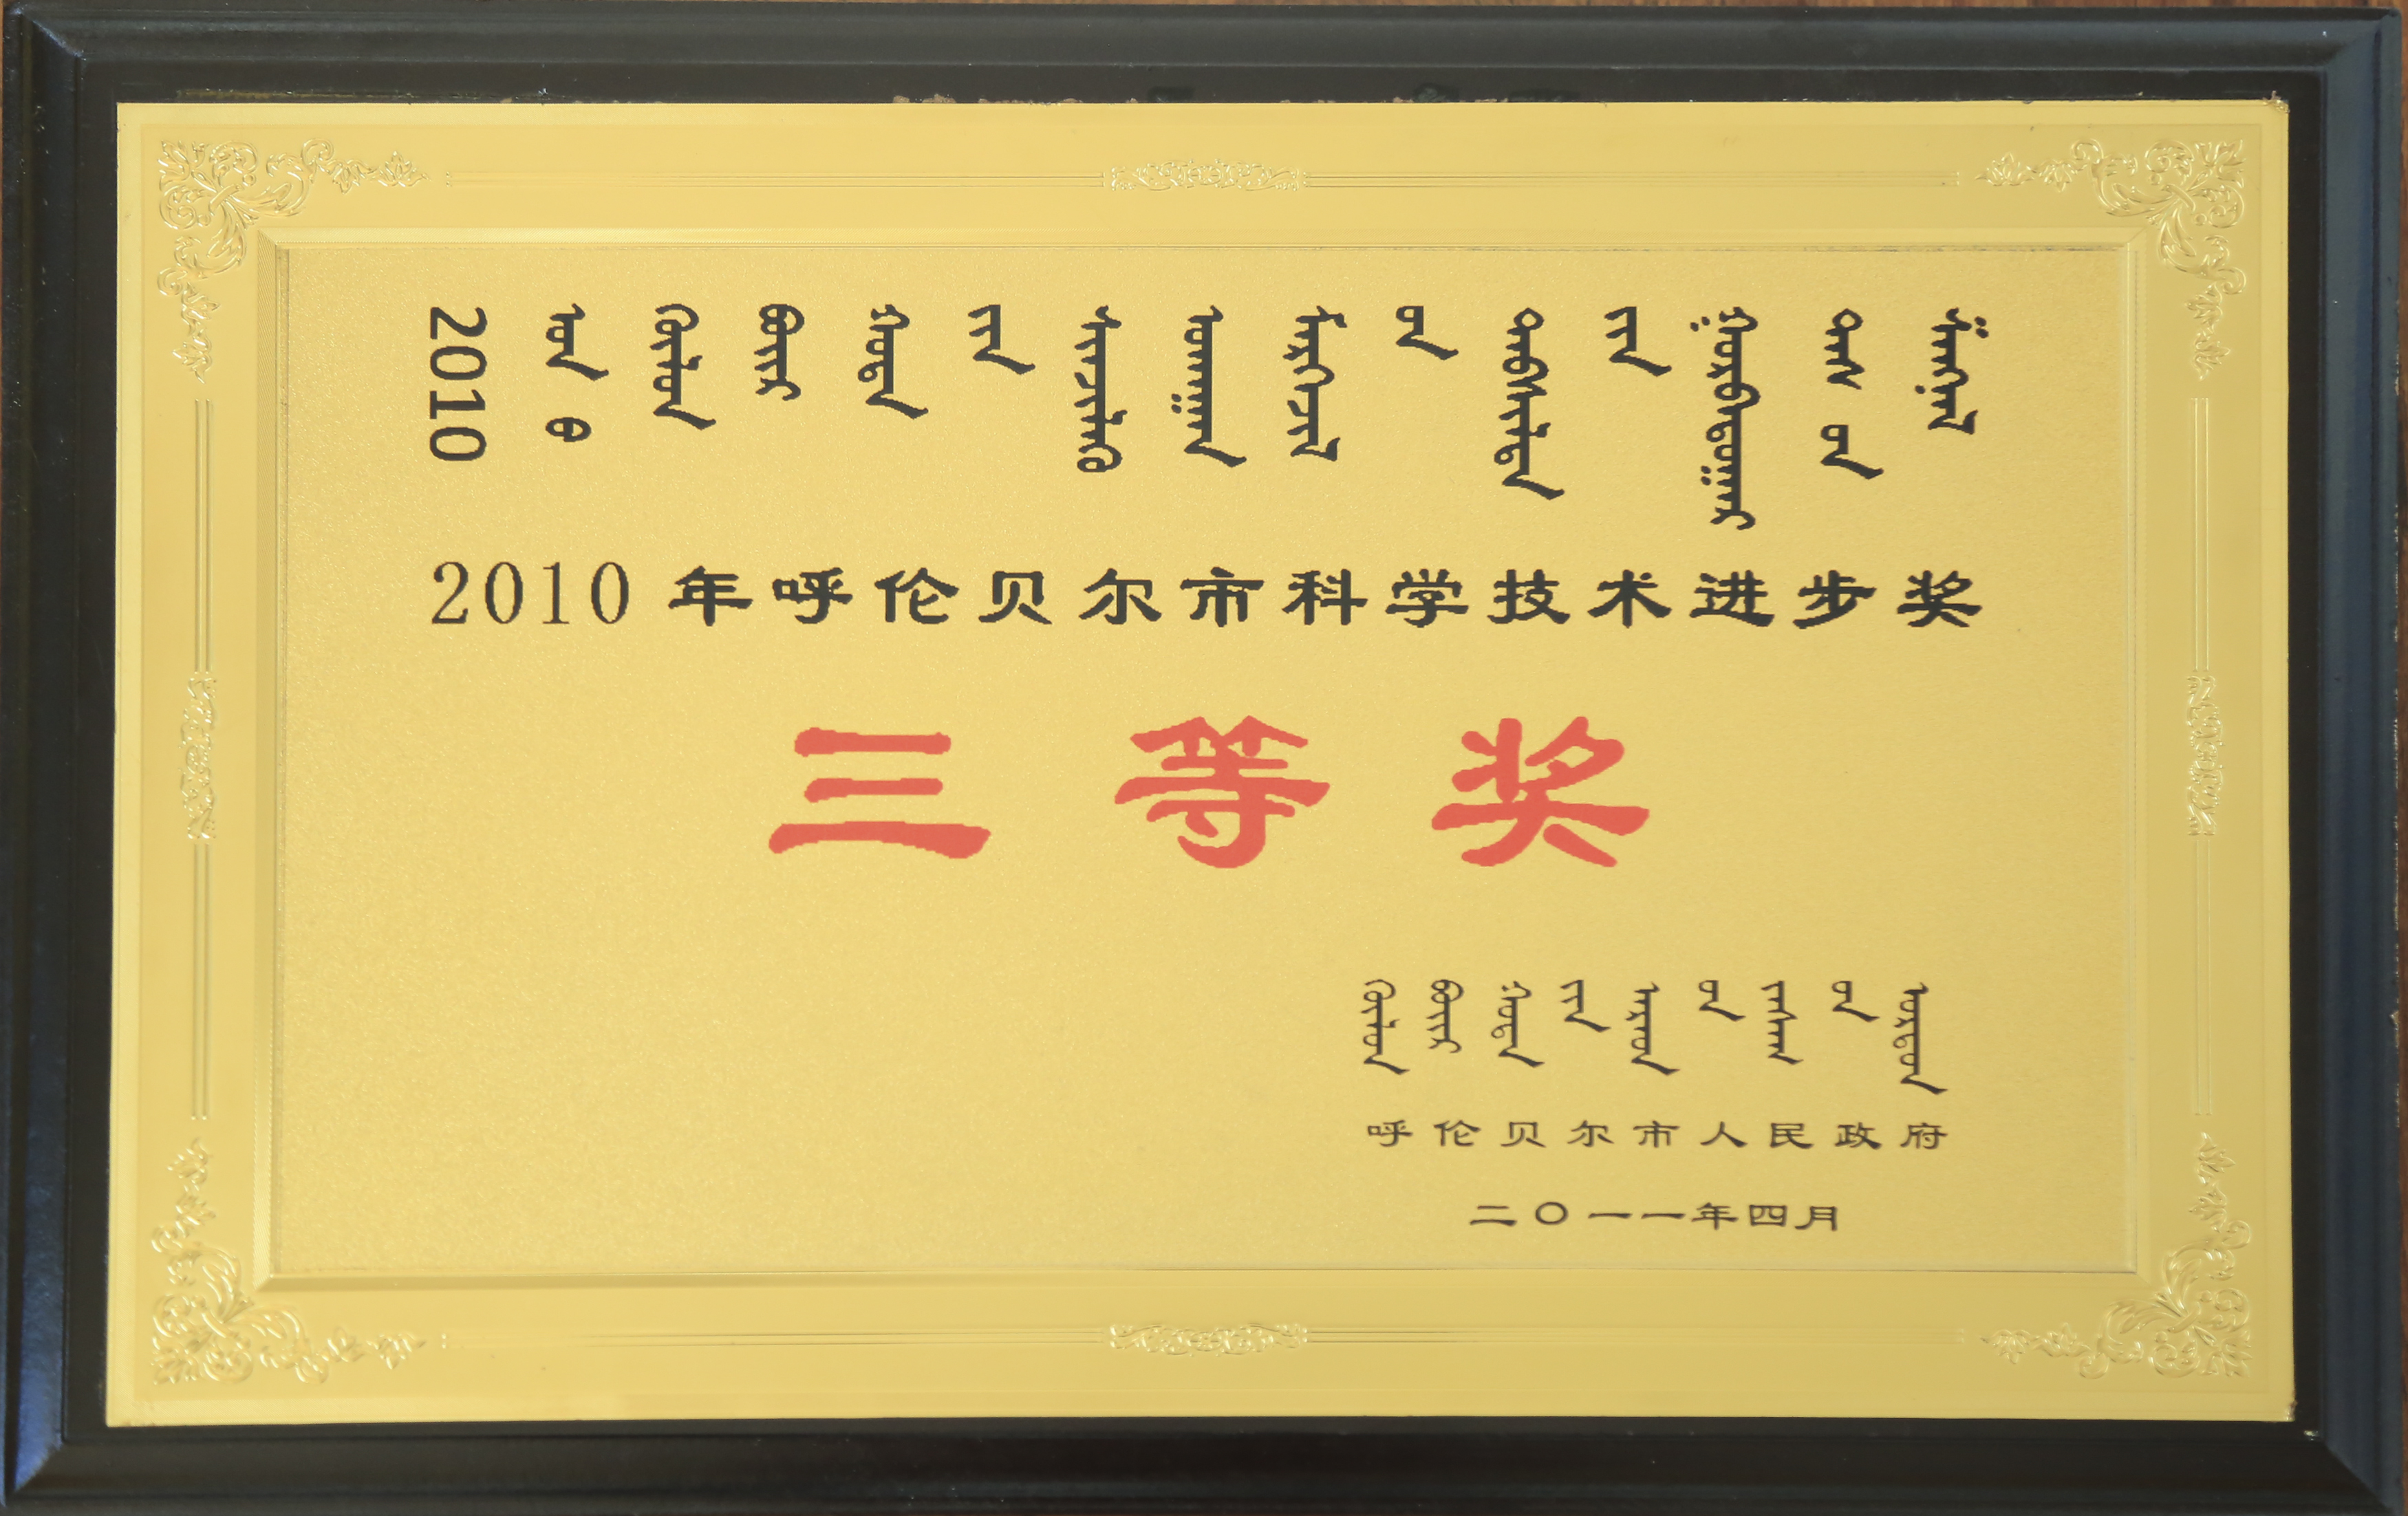 2010 ᠣᠨ ᠤ ᠬᠥᠯᠥᠨ ᠪᠤᠶᠢᠷ ᠬᠣᠲᠠ ᠶᠢᠨ ᠰᠢᠨᠵᠢᠯᠡᠬᠦ ᠤᠬᠠᠭᠠᠨ ᠮᠡᠷᠭᠡᠵᠢᠯ ᠦᠨ
2010 年呼伦贝尔市科学技术进步奖
三等奖
ᠬᠥᠯᠥᠨ ᠪᠤᠶᠢᠷ ᠬᠣᠲᠠ ᠶᠢᠨ ᠠᠷᠠᠳ ᠤᠨ ᠵᠠᠰᠠᠭ ᠤᠨ ᠣᠷᠳᠣᠨ
呼伦贝尔市人民政府
二〇一一年四月